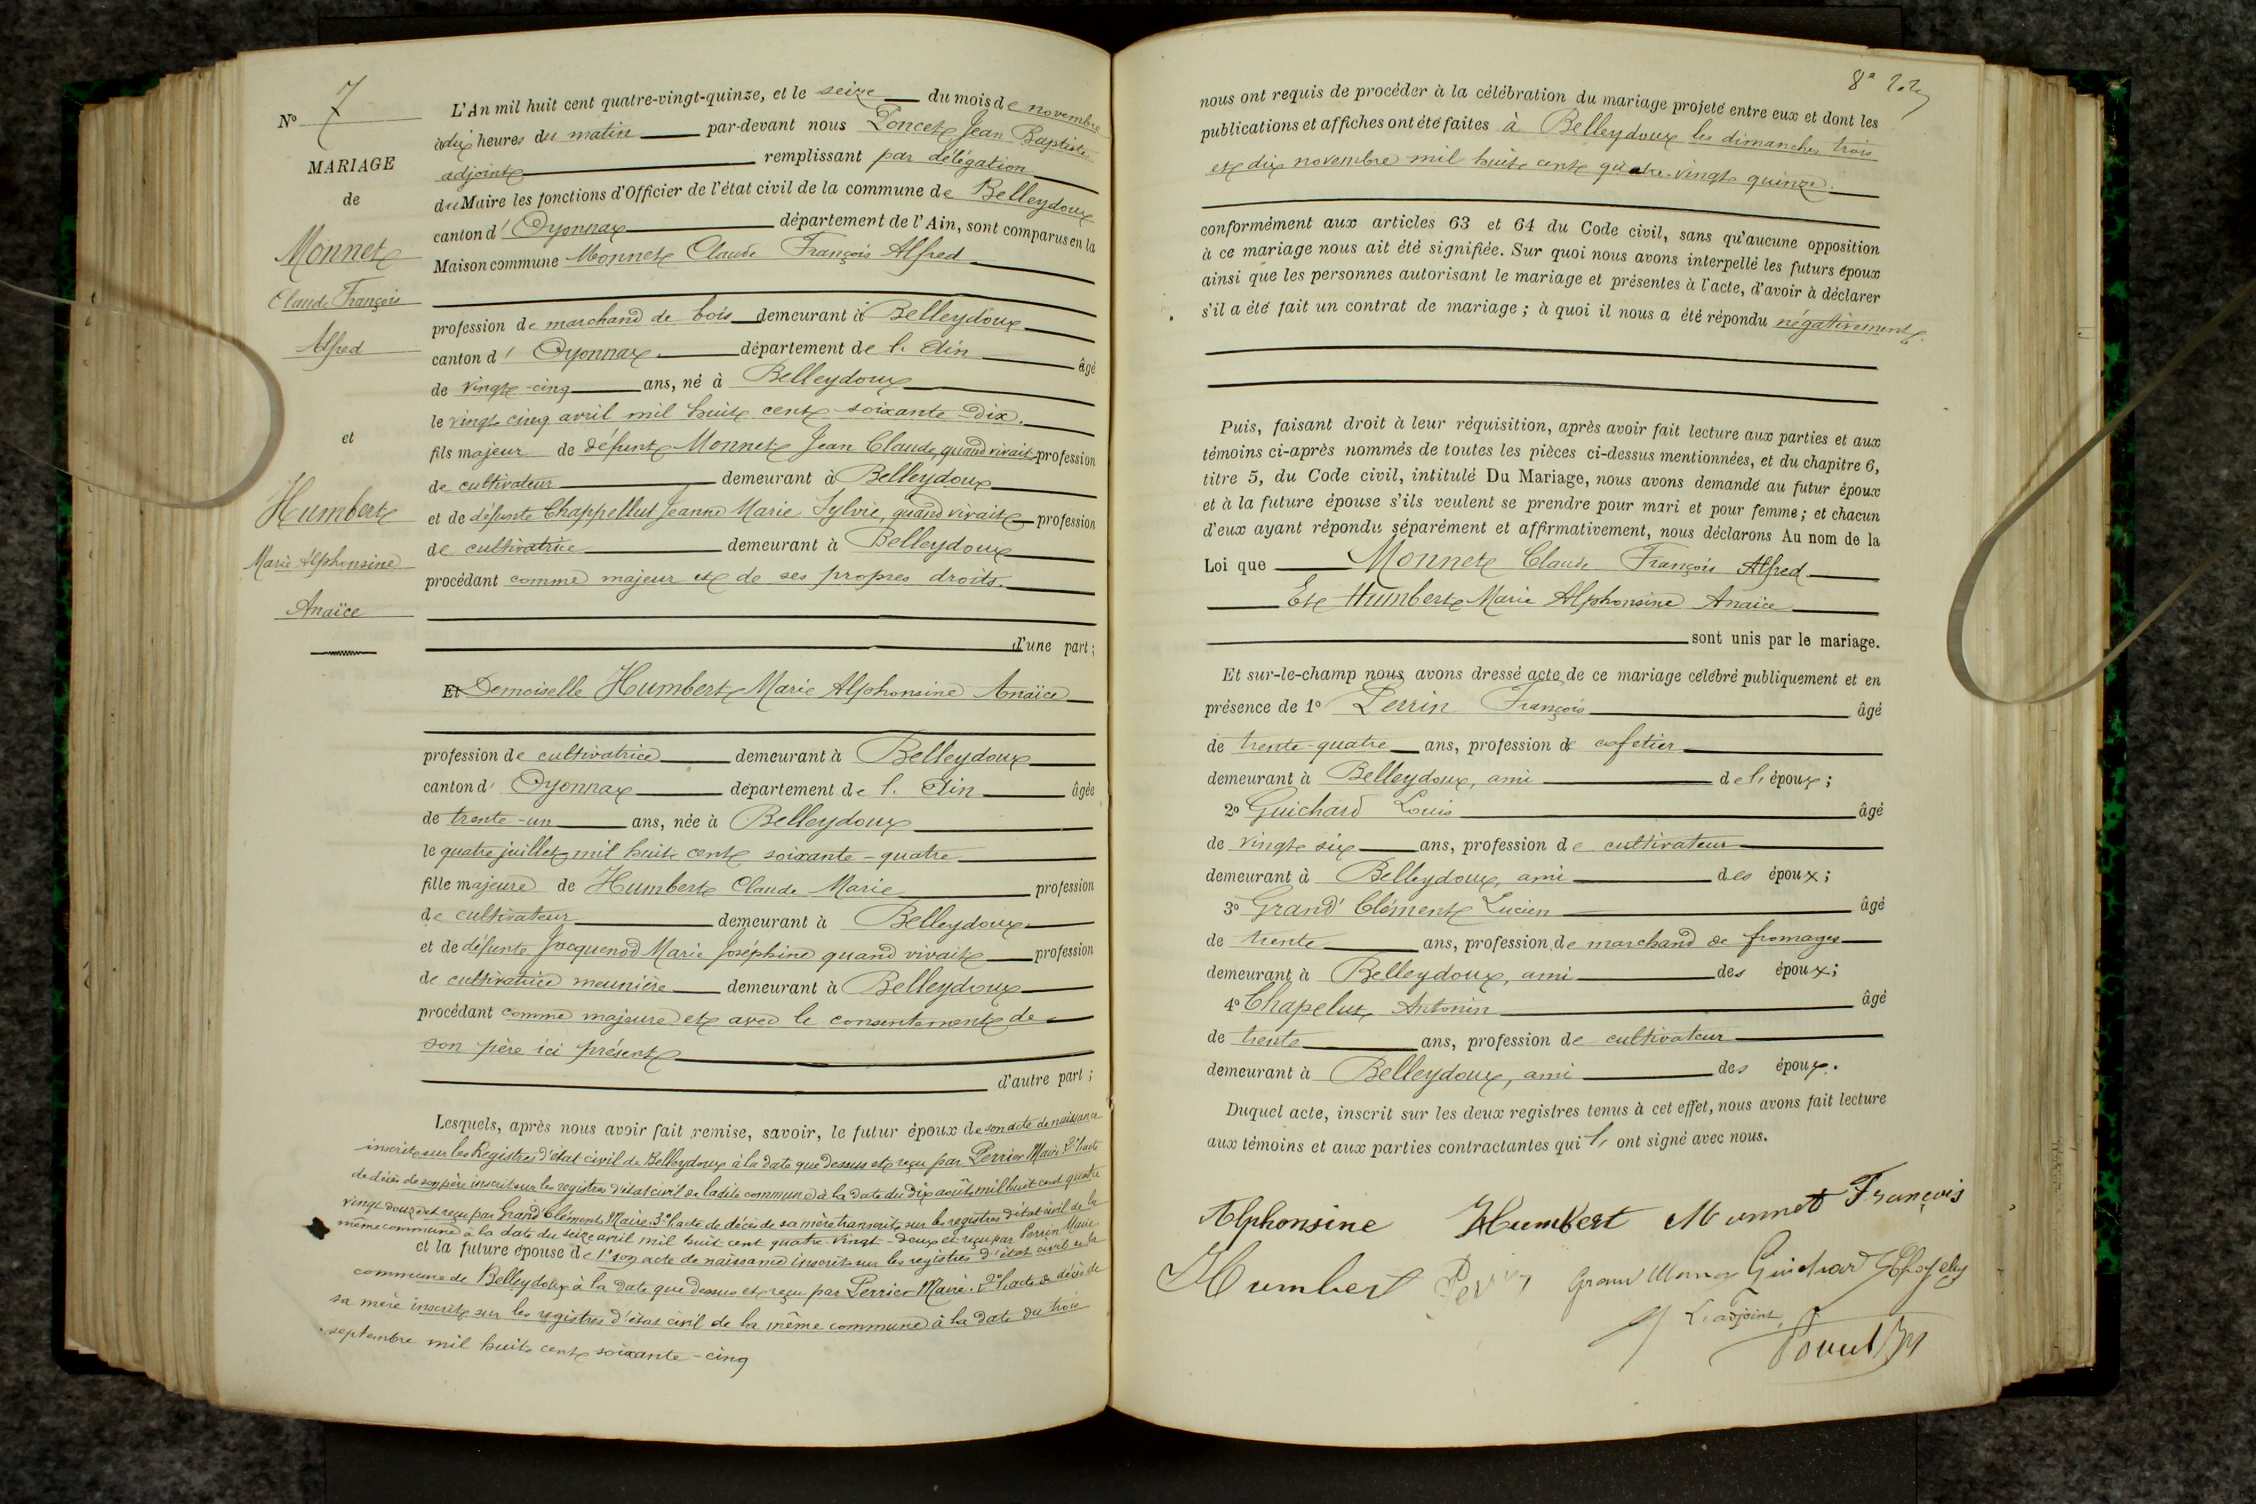 N° 7
MARIAGE
de
Monnet
Claude François
Alfred
et
Humbert
Marie Alphonsine
Anaïce
L'An mil huit cent quatre-vingt-quinze, et le seize du mois de novembre
à dix heures du matin par-devant nous Poncet Jean Baptiste
adjoint remplissant par délégation
du Maire les fonctions d'Officier de l'état civil de la commune de Belleydoux
canton d'Oyonnax département de l'Ain, sont comparus en la
Maison commune Monnet Claude François Alfred
profession de marchand de bois demeurant à Belleydoux
canton d'Oyonnax département de l'Ain âgé
de vingt-cinq ans, né à Belleydoux
le vingt cinq avril mil huit cent soixante-dix.
fils majeur de défunt Monnet Jean Claude, quand vivait profession
de cultivateur demeurant à Belleydoux
et de défunte Chappellut Jeanne Marie Sylvie, quand vivait profession
de cultivatrice demeurant à Belleydoux
procédant comme majeur et de ses propres droits.
d'une part;
Et Demoiselle Humbert Marie Alphonsine Anaïce
profession de cultivatrice demeurant à Belleydoux
canton d'Oyonnax département de l'Ain âgée
de trente-un ans, née à Belleydoux
le quatre juillet mil huit cent soixante-quatre
fille majeure de Humbert Claude Marie profession
de cultivateur demeurant à Belleydoux
et de défunte Jacquenod Marie Joséphine quand vivait profession
de cultivatrice meunière demeurant à Belleydoux
procédant comme majeure et avec le consentement de
son père ici présent
d'autre part;
Lesquels, après nous avoir fait remise, savoir, le futur époux de son acte de naissance
inscrit sur les Registres d'état civil de Belleydoux à la date que dessus et reçu par Perrier Maire. 2° l'acte
de décès de son père inscrit sur les registres d'état civil de ladite commune à la date du dix août mil huit cent quatre
vingt douze et reçu par Grand Clément, Maire. 3° l'acte de décès de sa mère transcrit sur les registres d'état civil de la
même commune à la date du seize avril mil huit cent quatre-vingt-deux et reçu par Perrin Maire
et la future épouse de 1° son acte de naissance inscrit sur les registres d'état civil de la
commune de Belleydoux à la date que dessus et reçu par Perrier Maire. 2° l'acte de décès de
sa mère inscrit sur les registres d'état civil de la même commune à la date du trois
septembre mil huit cent soixante-cinq
nous ont requis de procéder à la célébration du mariage projeté entre eux et dont les
publications et affiches ont été faites à Belleydoux les dimanches trois
et dix novembre mil huit cent quatre-vingt quinze.
conformément aux articles 63 et 64 du Code civil, sans qu'aucune opposition
à ce mariage nous ait été signifiée. Sur quoi nous avons interpellé les futurs époux
ainsi que les personnes autorisant le mariage et présentes à l'acte, d'avoir à déclarer
s'il a été fait un contrat de mariage; à quoi il nous a été répondu négativement.
Puis, faisant droit à leur réquisition, après avoir fait lecture aux parties et aux
témoins ci-après nommés de toutes les pièces ci-dessus mentionnées, et du chapitre 6,
titre 5, du Code civil, intitulé Du Mariage, nous avons demandé au futur époux
et à la future épouse s'ils veulent se prendre pour mari et pour femme; et chacun
d'eux ayant répondu séparément et affirmativement, nous déclarons Au nom de la
Loi que Monnet Claude François Alfred
Et Humbert Marie Alphonsine Anaïce
sont unis par le mariage.
Et sur-le-champ nous avons dressé acte de ce mariage célébré publiquement et en
présence de 1° Perrin François âgé
de trente-quatre ans, profession de cafetier
demeurant à Belleydoux, ami de l'époux;
2° Guichard Louis âgé
de vingt six ans, profession de cultivateur
demeurant à Belleydoux, ami des époux;
3° Grand' Clément Lucien âgé
de trente ans, profession de marchand de fromages
demeurant à Belleydoux, ami des époux;
4° Chapelut Antonin âgé
de trente ans, profession de cultivateur
demeurant à Belleydoux, ami des époux.
Duquel acte, inscrit sur les deux registres tenus à cet effet, nous avons fait lecture
aux témoins et aux parties contractantes qui l'ont signé avec nous.
Alphonsine Humbert Monnet François
Humbert Perrin Guichard
L'adjoint,